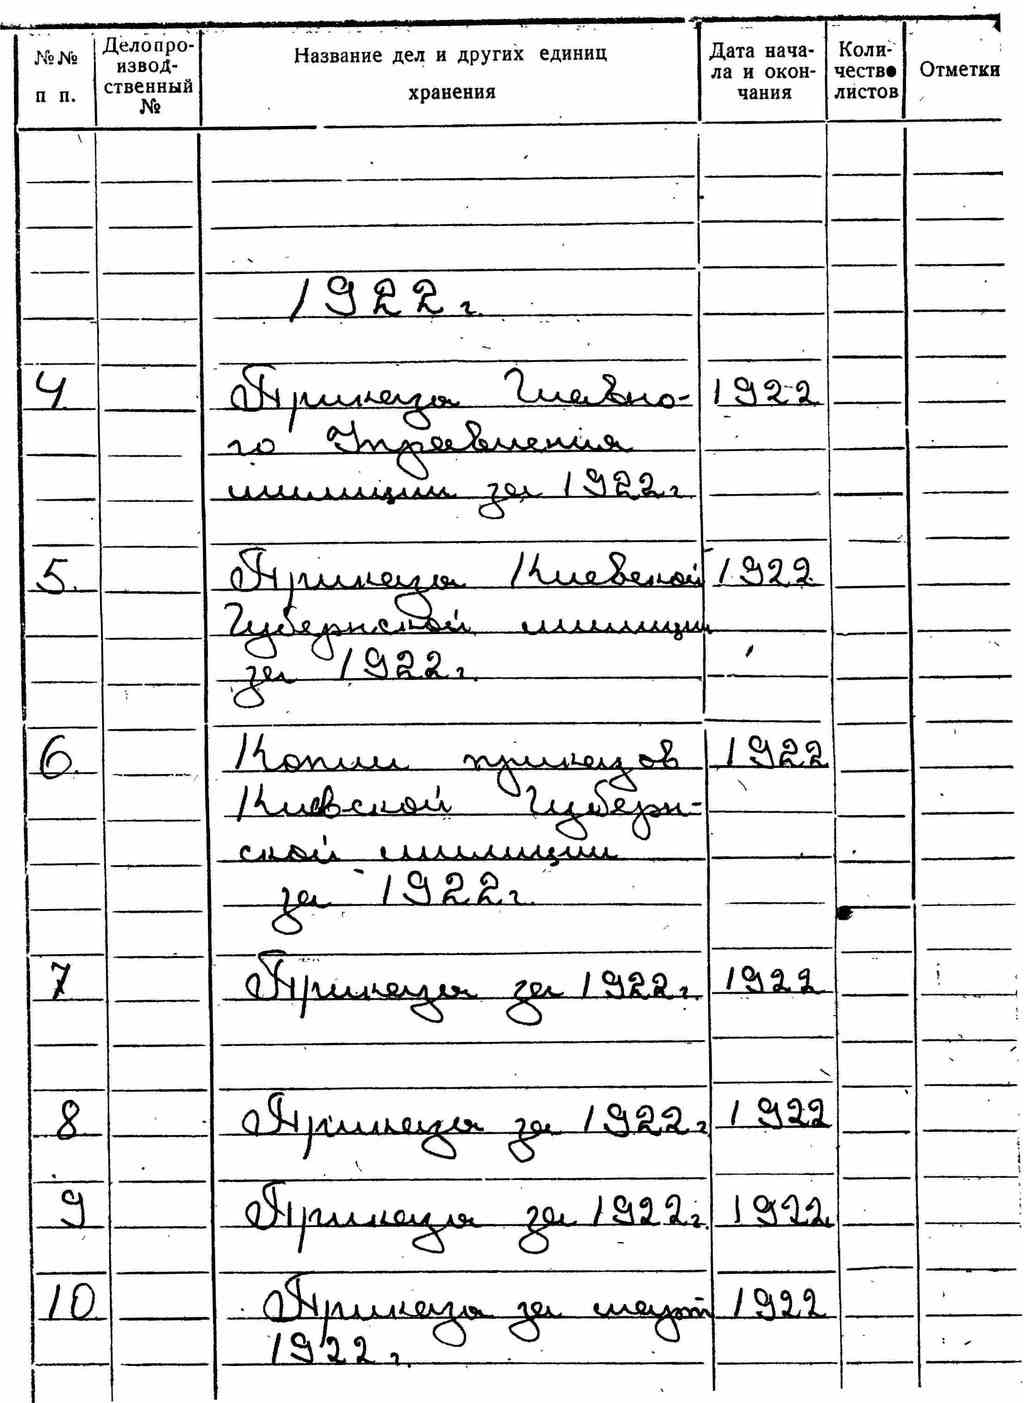 №№
п п.
Делопро-
извод-
ственный
№
Название дел и других единиц
хранения
Дата нача-
ла и окон-
чания
Коли-
чество
листов
Отметки
1922 г.
4 Приказы Главно- 1922
го Управления
милиции за 1922 г
5. Приказы Киевской 1922
Губернской милиции
за 1922 г.
6. Копии приказов 1922
Киевской Губерн-
ской милиции
за 1922 г.
7 Приказы за 1922 г. 1922
8 Приказы за 1922 г 1922
9 Приказы за 1922 г. 1922
10 Приказы за март 1922
1922 г.